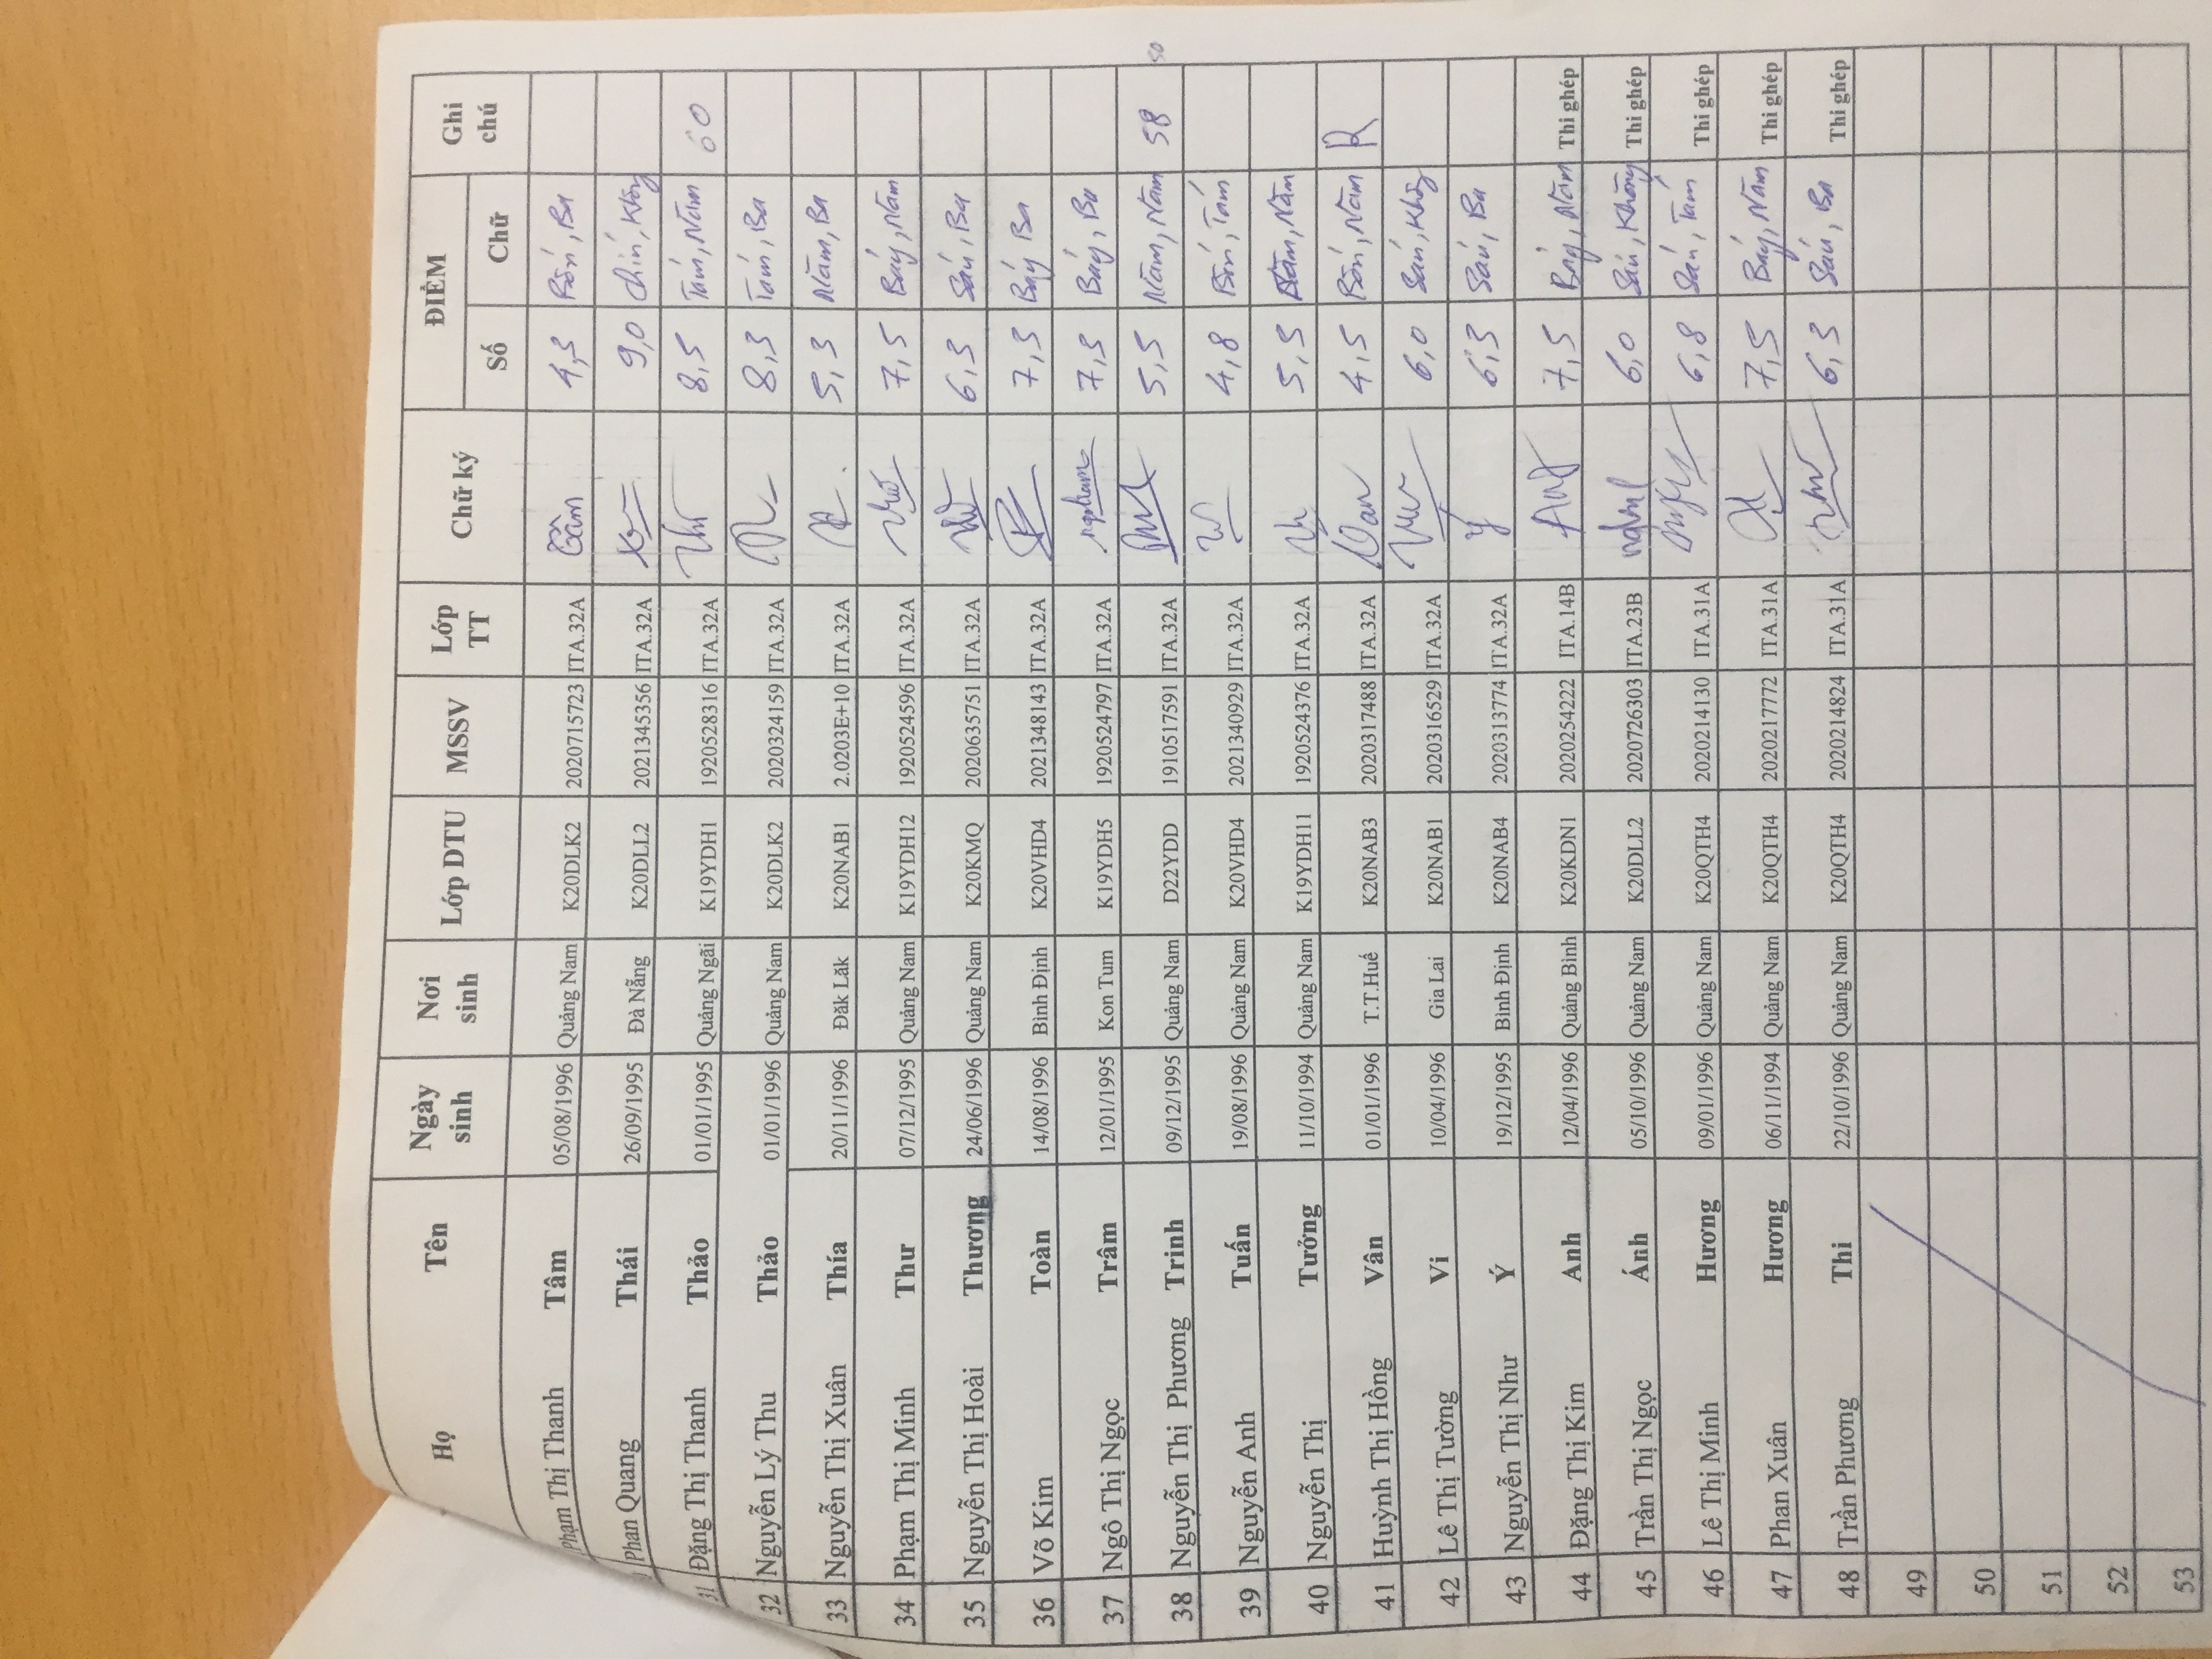 Họ Tên Ngày sinh Nơi sinh Lớp DTU MSSV Lớp TT Chữ ký ĐIỂM Ghi chú
Số Chữ
Phạm Thị Thanh Tâm 05/08/1996 Quảng Nam K20DLK2 2020715723 ITA.32A Tâm 4,3 Bốn, Ba
Phan Quang Thái 26/09/1995 Đà Nẵng K20DLL2 2021345356 ITA.32A 9,0 Chín, Không
31 Đặng Thị Thanh Thảo 01/01/1995 Quảng Ngãi K19YDH1 1920528316 ITA.32A 8,5 Tám, Năm 60
32 Nguyễn Lý Thu Thảo 01/01/1996 Quảng Nam K20DLK2 2020324159 ITA.32A 8,3 Tám, Ba
33 Nguyễn Thị Xuân Thía 20/11/1996 Đăk Lăk K20NAB1 2.0203E+10 ITA.32A 5,3 Năm, Ba
34 Phạm Thị Minh Thư 07/12/1995 Quảng Nam K19YDH12 1920524596 ITA.32A 7,5 Bảy, Năm
35 Nguyễn Thị Hoài Thương 24/06/1996 Quảng Nam K20KMQ 2020635751 ITA.32A 6,3 Sáu, Ba
36 Võ Kim Toàn 14/08/1996 Bình Định K20VHD4 2021348143 ITA.32A 7,3 Bảy Ba
37 Ngô Thị Ngọc Trâm 12/01/1995 Kon Tum K19YDH5 1920524797 ITA.32A 7,3 Bảy, Ba
38 Nguyễn Thị Phương Trinh 09/12/1995 Quảng Nam D22YDD 1910517591 ITA.32A 5,5 Năm, Năm 58 50
39 Nguyễn Anh Tuấn 19/08/1996 Quảng Nam K20VHD4 2021340929 ITA.32A 4,8 Bốn, Tám
40 Nguyễn Thị Tưởng 11/10/1994 Quảng Nam K19YDH11 1920524376 ITA.32A 5,5 Năm, Năm
41 Huỳnh Thị Hồng Vân 01/01/1996 T.T.Huế K20NAB3 2020317488 ITA.32A Van 4,5 Bốn, Năm R
42 Lê Thị Tường Vi 10/04/1996 Gia Lai K20NAB1 2020316529 ITA.32A 6,0 Sáu, Không
43 Nguyễn Thị Như Ý 19/12/1995 Bình Định K20NAB4 2020313774 ITA.32A ý 6,3 Sáu, Ba
44 Đặng Thị Kim Anh 12/04/1996 Quảng Bình K20KDN1 2020254222 ITA.14B 7,5 Bảy, Năm Thi ghép
45 Trần Thị Ngọc Ánh 05/10/1996 Quảng Nam K20DLL2 2020726303 ITA.23B 6,0 Sáu, Không Thi ghép
46 Lê Thị Minh Hương 09/01/1996 Quảng Nam K20QTH4 2020214130 ITA.31A 6,8 Sáu, Tám Thi ghép
47 Phan Xuân Hương 06/11/1994 Quảng Nam K20QTH4 2020217772 ITA.31A 7,5 Bảy, Năm Thi ghép
48 Trần Phương Thi 22/10/1996 Quảng Nam K20QTH4 2020214824 ITA.31A 6,3 Sáu, Ba Thi ghép
49
50
51
52
53